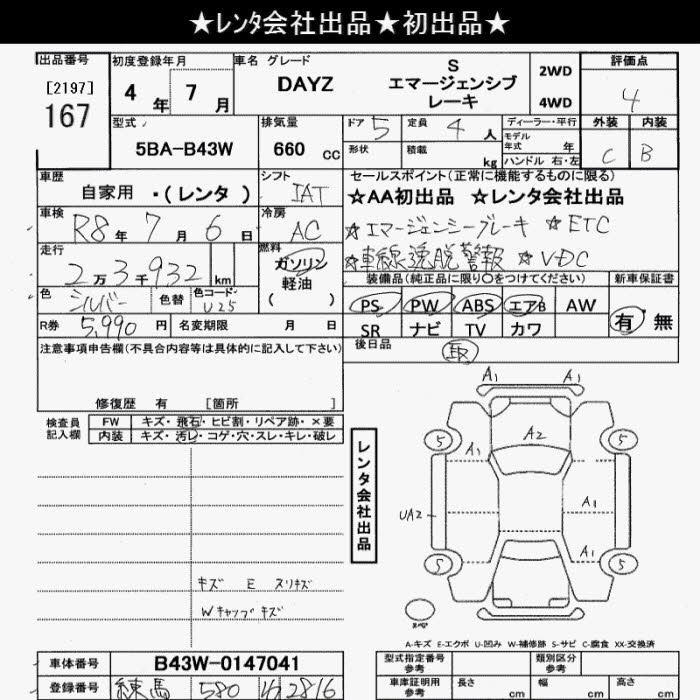 ★レンタ会社出品★初出品★
出品番号
[2197]
167
初度登録年月
4年 7月
車名 グレード
DAYZ
S
エマージェンシブ
レーキ
2WD
4WD
評価点
4
外装 内装
C B
型式
5BA-B43W
排気量
660 cc
ドア 5
形状
定員 4人
積載 kg
ディーラー・平行
モデル
年式 年
ハンドル 右・左
車歴
自家用 ・(レンタ)
シフト
IAT
セールスポイント(正常に機能するものに限る)
☆AA初出品 ☆レンタ会社出品
☆エマージェンシーブレーキ ☆ETC
☆車線逸脱警報 ☆VDC
車検
R8年 7月 6日
冷房
AC
走行
2万3千932 km
燃料
ガソリン
軽油
( )
色
シルバー
色替
色コード
U25
装備品(純正品に限り〇をつけてください)
PS PW ABS エアB AW
SR ナビ TV カワ
新車保証書
有・無
R券 5,990円
名変期限 月 日
後日品
取
注意事項申告欄(不具合内容等は具体的に記入して下さい)
修復歴 有 [箇所 ]
検査員
記入欄
FW キズ・飛石・ヒビ割・リペア跡・×要
内装 キズ・汚レ・コゲ・穴・スレ・キレ・破レ
キズ E スリキズ
Wキャップキズ
レンタ会社出品
A1 A1
5 A1 A2 5
UA2 A1
A1
5 5
スペア
A-キズ E-エクボ U-凹み W-補修跡 S-サビ C-腐食 XX-交換済
車体番号 B43W-0147041
登録番号 練馬 580 わ2816
型式指定番号
参考
類別区分
参考
車庫証明用
参考
長さ cm
幅 cm
高さ cm